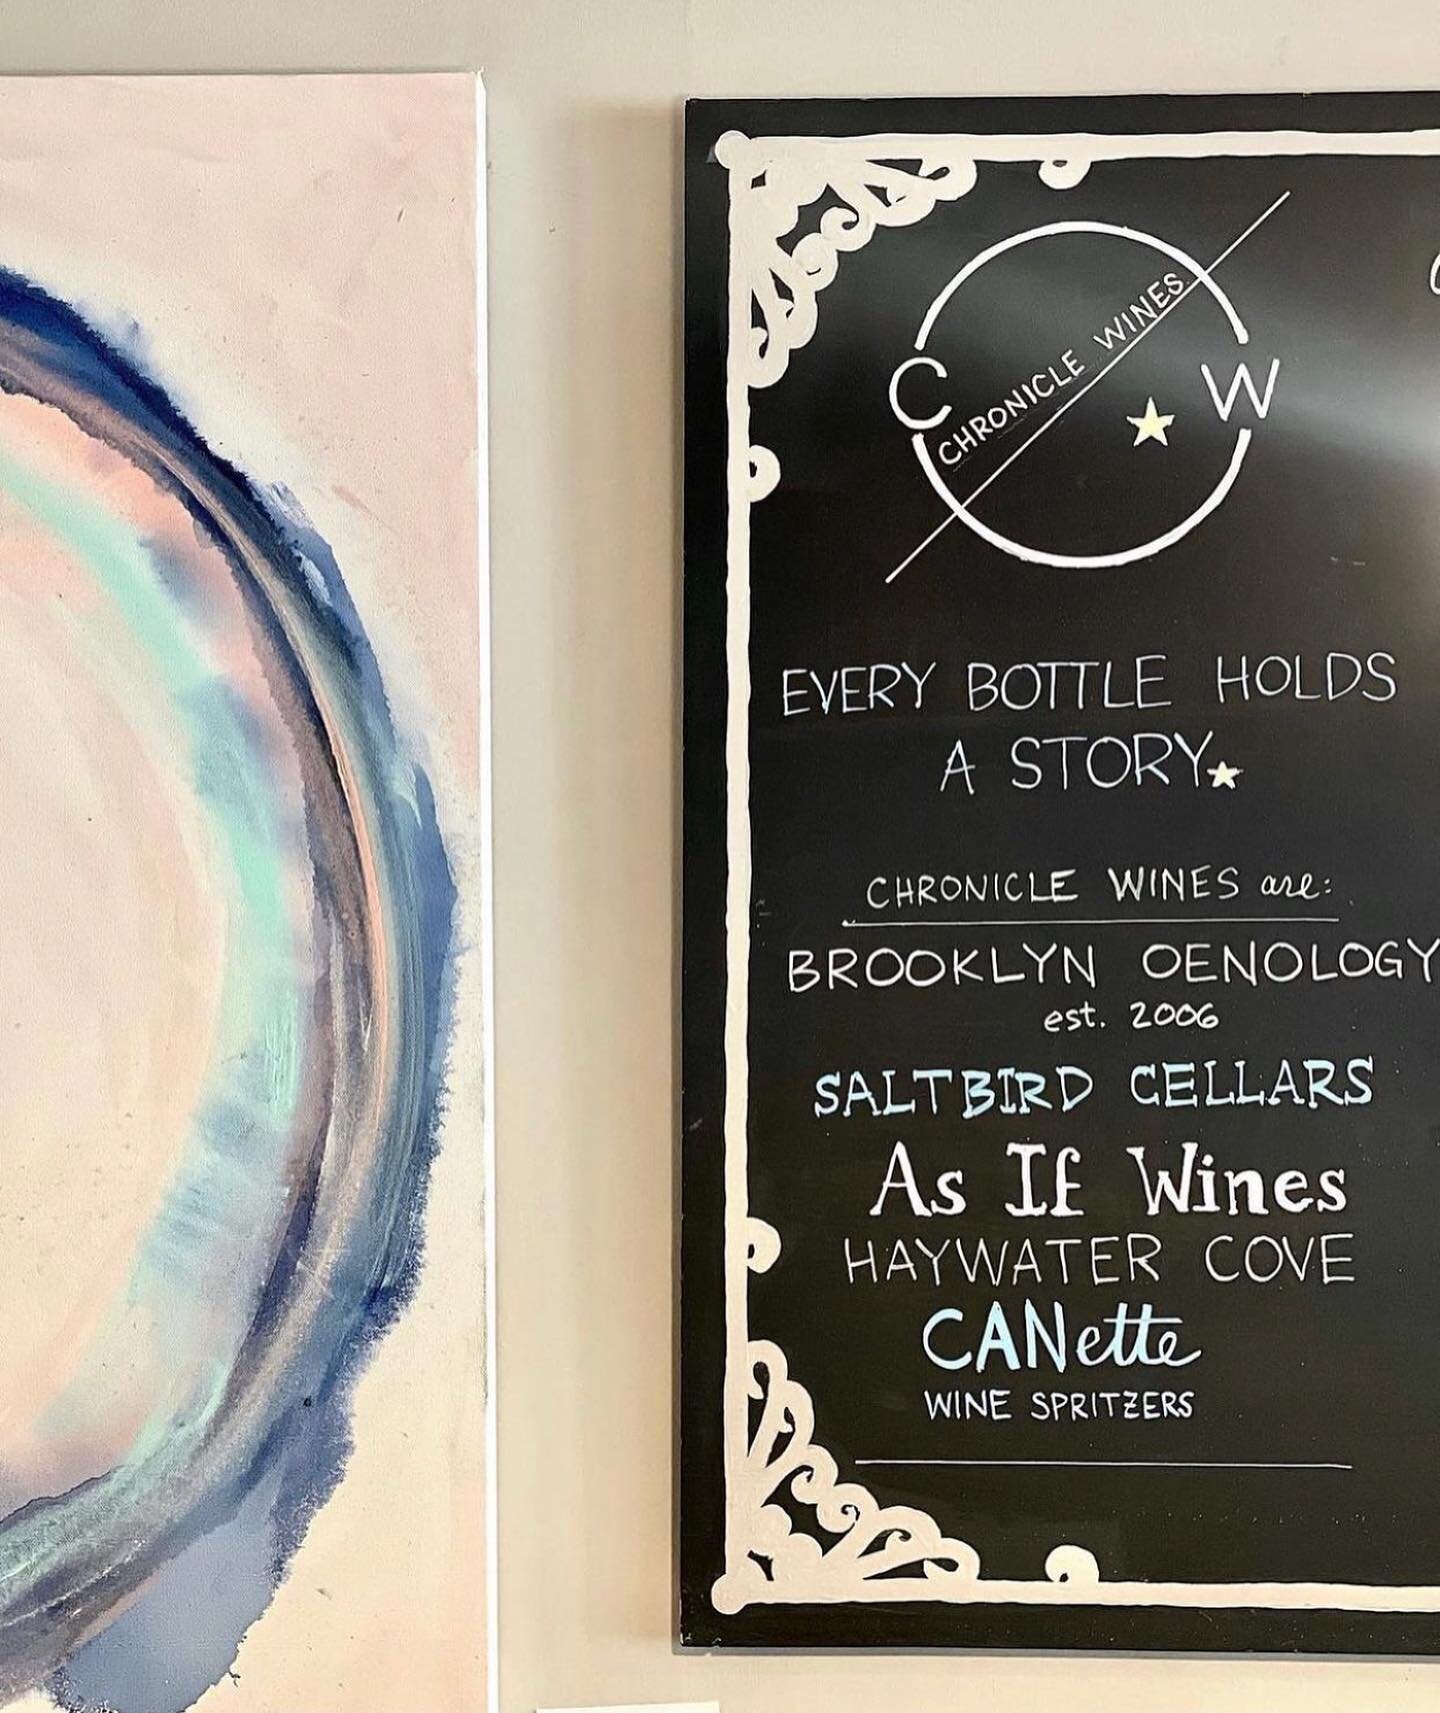 CHRONICLE WINES
C W
EVERY BOTTLE HOLDS
A STORY
CHRONICLE WINES are:
BROOKLYN OENOLOGY
est. 2006
SALTBIRD CELLARS
As If Wines
HAYWATER COVE
CANette
WINE SPRITZERS